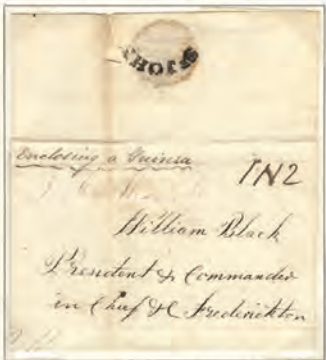 Enclosing a Guinea
1N2
William Black
President & Commander
in Chief &c Fredericton